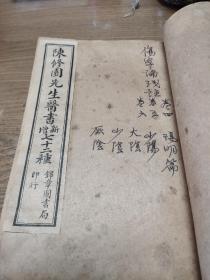 卷四 陽明篇
傷寒論浅註卷五 少陽
卷六 大陰
少陰
厥陰
陳修園先生醫書新增七十二種
錦章圖書局
印行